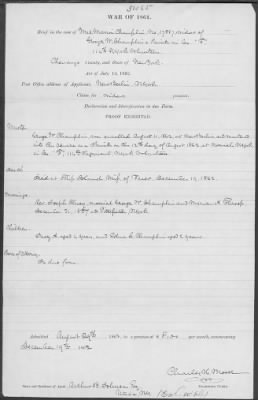 WAR OF 1861.
Brief in the case of Mrs Maria Champlin No. 1789, widow of
George W. Champlin a Private in Co.
114th Regt Volunteers
Chenango County, and State of New York.
Act of July 14, 1862.
Post Office address of Applicant: New Berlin, N York
Claim for Widows pension.
Declaration and Identification in due Form.
PROOF EXHIBITED.
Muster.
George W. Champlin was enrolled August 11, 1862, at New Berlin and mustered
into the service as a Private on the 12th day of August 1862 at Norwich N York
in Co. 114th Regiment N York Volunteers
Death.
Died at Ship Island Miss. of Fever December 19, 1862.
Marriage.
Rev. Joseph married George W. Champlin and Maria
December 31 at Pittsfield N York
Children.
aged 4 years, and aged 2 years.
In due form
Admitted August 29th 1863, to a pension of $8.00 per month, commencing
December 19th 1862
Charles
Examining Clerk.
Name and Residence of Agent.